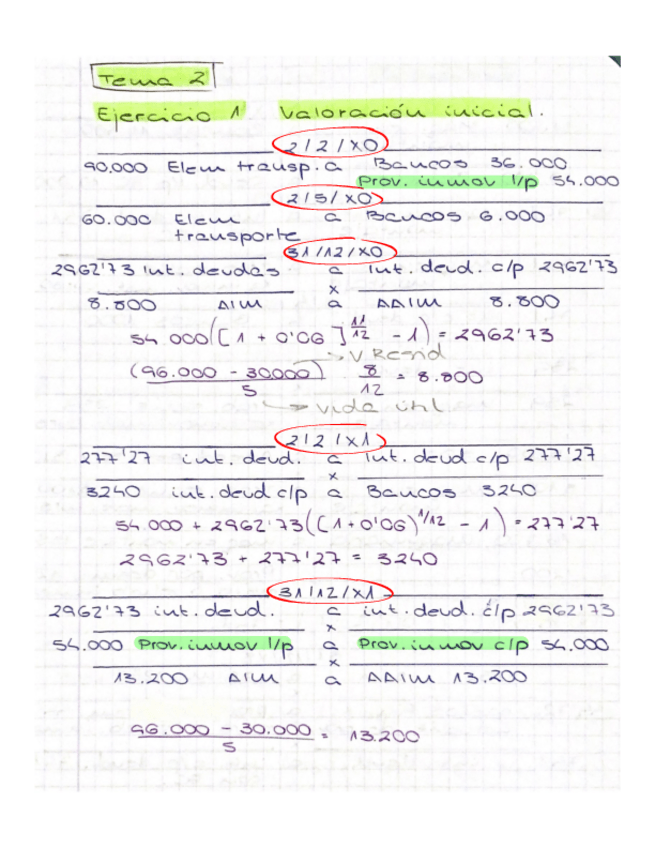 Tema 2
Ejercicio 1 Valoración inicial.
2/2/X0
90.000 Elem transp. a Bancos 36.000
Prov. inmov l/p 54.000
2/5/X0
60.000 Elem transporte a Bancos 6.000
31/12/X0
2962'73 Int. deudas a Int. deud. c/p 2962'73
x
8.800 AIM a AAIM 8.800
54.000([1 + 0'06]^11/12 - 1) = 2962'73
→ V. Resid
(96.000 - 30.000)/5 · 8/12 = 8.800
→ vida útil
2/2/X1
277'27 int. deud. a Int. deud c/p 277'27
x
3240 int. deud c/p a Bancos 3240
54.000 + 2962'73([1+0'06)^1/12 - 1) = 277'27
2962'73 + 277'27 = 3240
31/12/X1
2962'73 int. deud. a int. deud. c/p 2962'73
x
54.000 Prov. inmov l/p a Prov. inmov c/p 54.000
x
13.200 AIM a AAIM 13.200
96.000 - 30.000/5 = 13.200